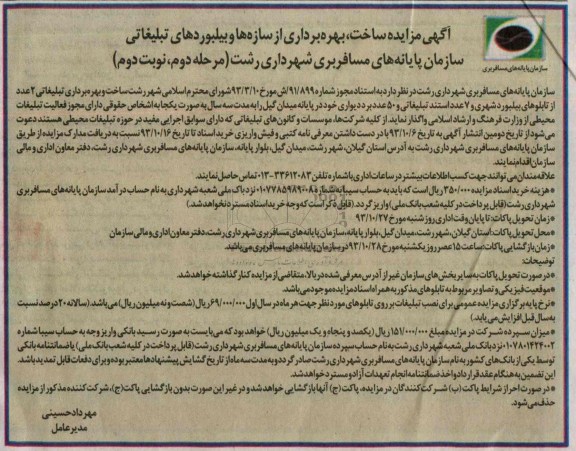 آگهی مزایده ساخت، بهره‌برداری از سازه‌ها و بیلبوردهای تبلیغاتی
سازمان پایانه‌های مسافربری شهرداری رشت (مرحله دوم، نوبت دوم)
سازمان پایانه‌های مسافربری
سازمان پایانه‌های مسافربری شهرداری رشت در نظر دارد به استناد مجوز شماره ۹۱/۸۹۹/ش مورخ ۹۳/۳/۱۰ شورای محترم اسلامی شهر رشت ساخت و بهره‌برداری تبلیغاتی ۲ عدد
از تابلوهای بیلبورد شهری و ۷ عدد استند تبلیغاتی و ۵۰ عدد برد دیواری خود در پایانه میدان گیل را به مدت سه سال به صورت یکجا به اشخاص حقوقی دارای مجوز فعالیت تبلیغات
محیطی از وزارت فرهنگ و ارشاد اسلامی واگذار نماید. از کلیه شرکت‌ها، موسسات و کانون‌های تبلیغاتی که دارای سوابق اجرایی مفید در حوزه تبلیغات محیطی هستند دعوت
می‌شود از تاریخ دومین انتشار آگهی به تاریخ ۹۳/۱۰/۶ با در دست داشتن معرفی نامه کتبی و فیش واریزی خرید اسناد تا تاریخ ۹۳/۱۰/۱۶ نسبت به دریافت مدارک مزایده از طریق
سازمان پایانه‌های مسافربری شهرداری رشت به آدرس استان گیلان، شهر رشت، میدان گیل، بلوار پایانه، سازمان پایانه‌های مسافربری شهرداری رشت، دفتر معاون اداری و مالی
سازمان اقدام نمایند.
علاقه‌مندان می‌توانند جهت کسب اطلاعات بیشتر در ساعات اداری با شماره تلفن ۳۳۶۱۲۰۸۳-۰۱۳ تماس حاصل نمایند.
*هزینه خرید اسناد مزایده ۳۵۰/۰۰۰ ریال است که باید به حساب سیبا به شماره ۰۱۰۷۷۸۵۹۸۹۰۰۸ نزد بانک ملی شعبه شهرداری به نام حساب درآمد سازمان پایانه‌های مسافربری
شهرداری رشت (قابل پرداخت در کلیه شعب بانک ملی) واریز گردد. (قابل ذکر است که وجه خرید اسناد مسترد نخواهد شد.)
*زمان تحویل پاکات: تا پایان وقت اداری روز شنبه مورخ ۹۳/۱۰/۲۷
*محل تحویل پاکات: استان گیلان، شهر رشت، میدان گیل، بلوار پایانه، سازمان پایانه‌های مسافربری شهرداری رشت، دفتر معاون اداری و مالی سازمان
*زمان بازگشایی پاکات: ساعت ۱۵ عصر روز یکشنبه مورخ ۹۳/۱۰/۲۸ در سازمان پایانه‌های مسافربری می‌باشد.
توضیحات:
*در صورت تحویل پاکات به سایر بخش‌های سازمان غیر از آدرس معرفی شده در بالا، متقاضی از مزایده کنار گذاشته خواهد شد.
*موقعیت فیزیکی و تصاویر مربوط به تابلوهای مذکور به همراه اسناد مزایده موجود می‌باشد.
*نرخ پایه برگزاری مزایده عمومی برای نصب تبلیغات بر روی تابلوهای مورد نظر جهت هر ماه در سال اول ۶۹/۰۰۰/۰۰۰ ریال (شصت و نه میلیون ریال) می‌باشد. (سالانه ۲۰ درصد نسبت
به سال قبل افزایش می‌یابد)
*میزان سپرده شرکت در مزایده مبلغ ۱۵۱/۰۰۰/۰۰۰ ریال (یکصد و پنجاه و یک میلیون ریال) خواهد بود که می‌بایست به صورت رسید بانکی واریز وجه به حساب سیبا شماره
۰۱۰۷۸۰۱۴۲۴۰۰۲ نزد بانک ملی شعبه شهرداری رشت به نام حساب سپرده سازمان پایانه‌های مسافربری شهرداری رشت (قابل پرداخت در کلیه شعب بانک ملی) یا ضمانتنامه بانکی
توسط یکی از بانک‌های کشور به نام سازمان پایانه‌های مسافربری شهرداری رشت صادر گردد و به مدت سه ماه از تاریخ گشایش پیشنهادها معتبر بوده و برای دفعات قابل تمدید باشد.
این تضمین به هنگام عقد قرارداد و اخذ ضمانتنامه انجام تعهدات آزاد و مسترد خواهد شد.
*در صورت احراز شرایط پاکت (ب) شرکت کنندگان در مزایده، پاکت (ج) آنها بازگشایی خواهد شد و در غیر این صورت بدون بازگشایی پاکت (ج)، شرکت کننده مذکور از مزایده
حذف می‌شود.
مهرداد حسینی
مدیر عامل